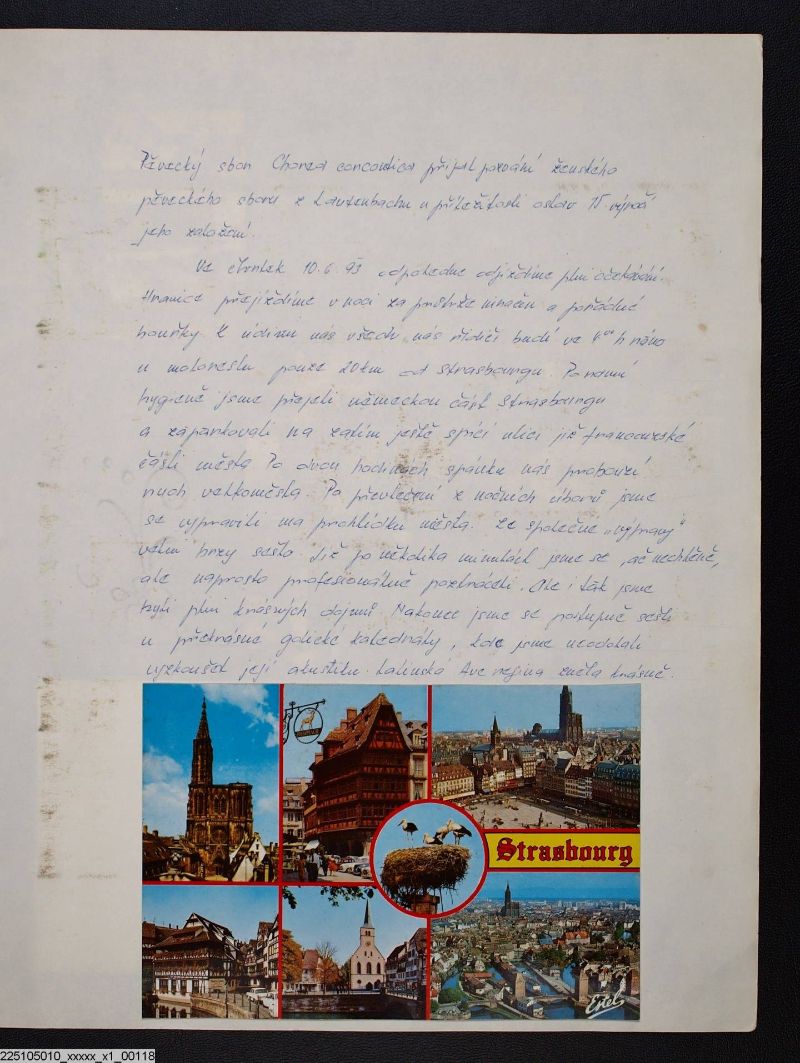 Pěvecký sbor Chorea concortica přijal pozvání ženského
pěveckého sboru z Lautenbachu u příležitosti oslav 15. výročí
jeho založení.
Ve čtvrtek 10.6.93 odpoledne odjíždíme plni očekávání.
Hranice přejíždíme v noci za průtrže mračen a pořádné
bouřky. K údivu nás všech, nás řidiči budí ve 4°° h ráno
u motorestu pouze 20 km od Strasbourgu. Po ranní
hygieně jsme přejeli německou část Strasbourgu
a zaparkovali na zatím ještě spící ulici již francouzské
části města. Po dvou hodinách spánku nás probouzí
ruch velkoměsta. Po převlečení z nočních úborů jsme
se vypravili na prohlídku města. Ze společné „výpravy"
velmi brzy sešlo. Již po několika minutách jsme se, ač nechtěně,
ale naprosto profesionálně poztráceli. Ale i tak jsme
byli plni krásných dojmů. Nakonec jsme se postupně sešli
u překrásné gotické katedrály, kde jsme neodolali
vyzkoušet její akustiku. Latinská Ave regina zněla krásně.
Strasbourg
Estel
225105010_xxxxx_x1_00118